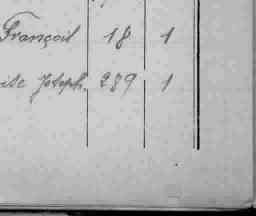 François 18 1
ise Joseph. 289 1